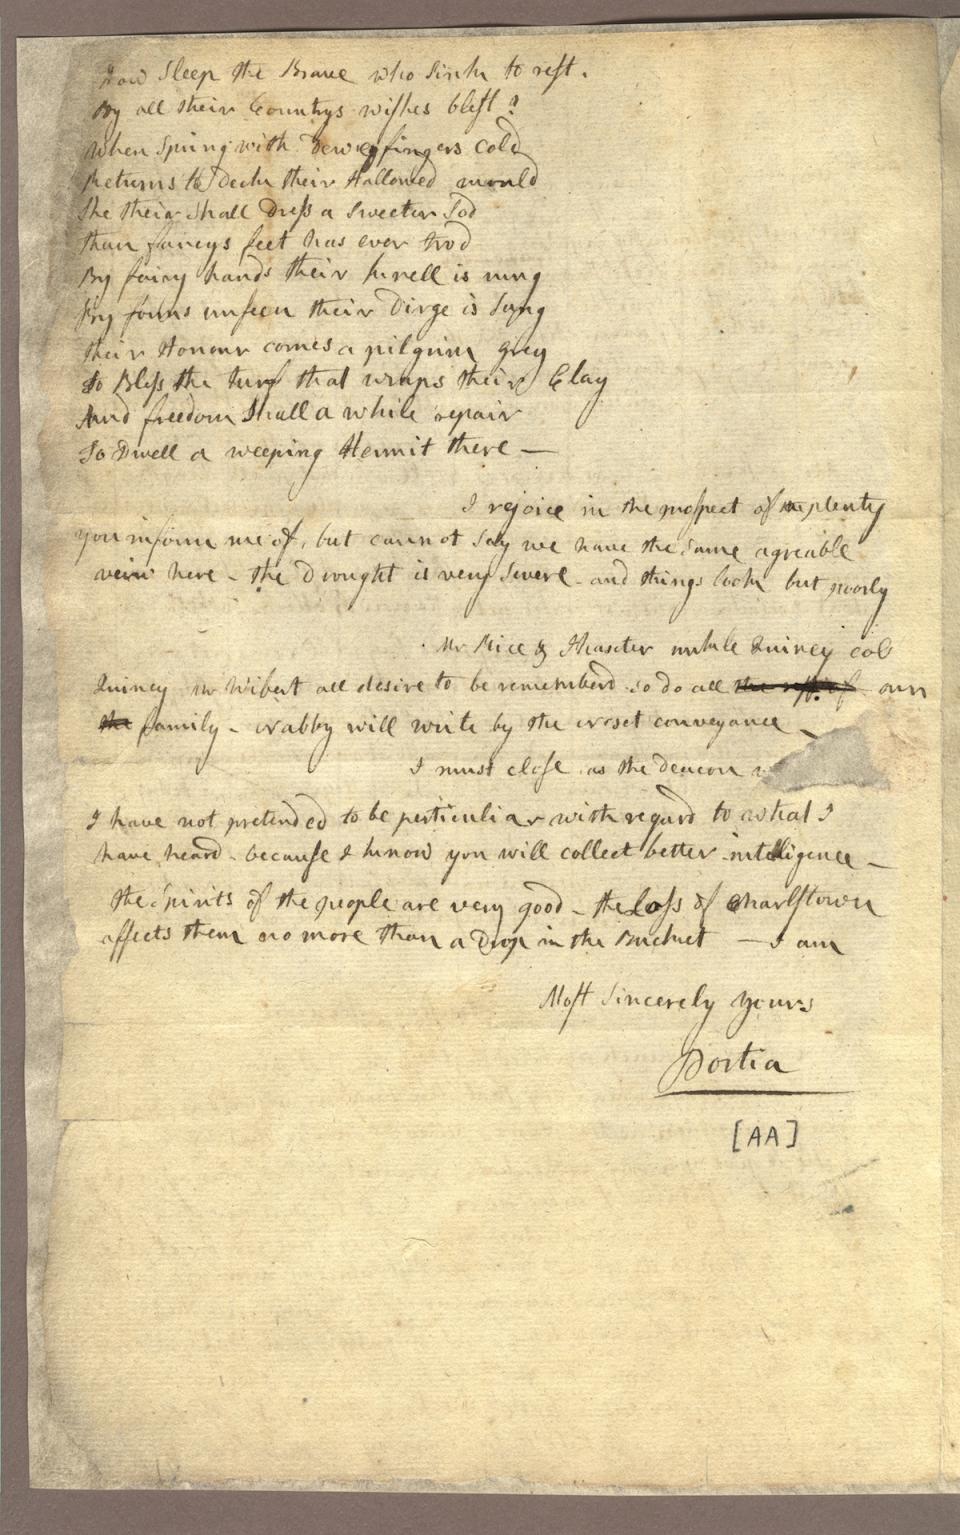 How Sleep the Brave who Sink to rest.
By all their Countrys wishes blest?
When Spring with Dewey fingers cold
Returns to Deck their Hallowed mould
She their Shall Dress a Sweeter Sod
than fancys feet has ever trod
By fairy hands their knell is rung
By forms unseen their Dirge is Sung
their Honour comes a pilgrim grey
To Bless the turf that wraps their Clay
And freedom Shall a while repair
To Dwell a weeping Hermit there —
I rejoice in the prospect of the plenty
you inform me of, but cannot Say we have the Same agreable
veiw here - the Drought is very Severe - and things look but poorly
Mr Rice & Thaxter unkle Quincy col
Quincy mr Wibert all desire to be rememberd so do all the rest of our
the family - nabby will write by the next conveyance -
I must close as the deacon w
I have not pretended to be perticuliar with regard to what I
have heard - because I know you will collect better intelligence —
the Spirits of the people are very good - the loss of Charlstown
affects them no more than a Drop in the Bucket — I am
Most Sincerely yours
Portia
[AA]